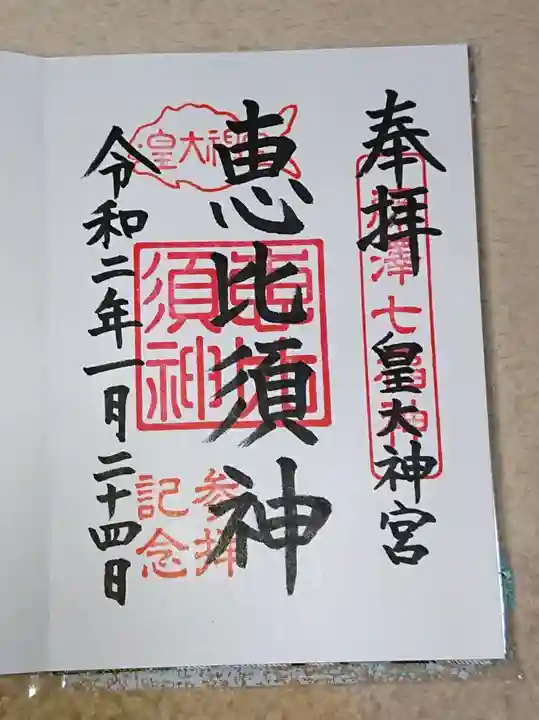 奉拝
皇大神宮
澤七福神
恵比須神
皇大神
恵比須神
参拝
記念
令和二年一月二十四日